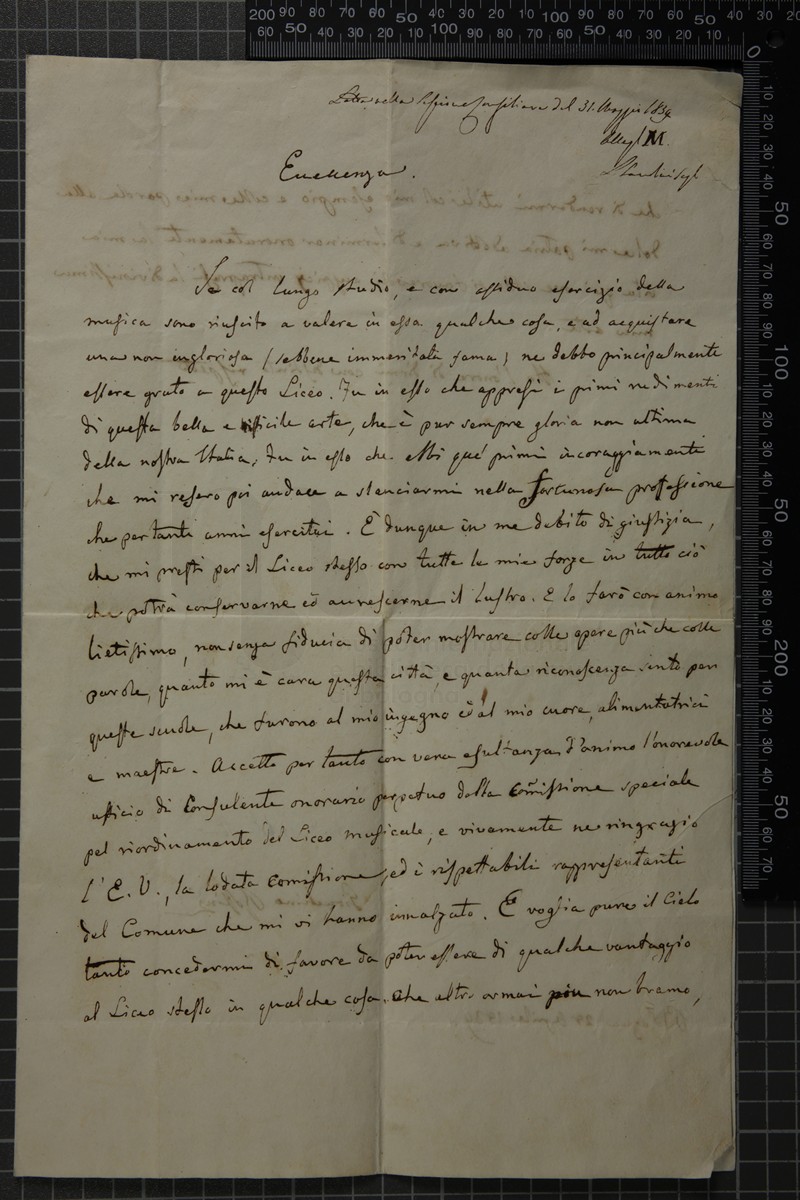 Letta nella Sessione Consigliare del 31. Maggio 1839
Alleg.M.
Eccellenza.
Se col lungo studio, e con assiduo esercizio della
musica sono riuscito a valere in essa qualche cosa, e ad acquistare
una non ingloriosa (sebbene immeritata fama) ne debbo principalmente
essere grato a questo Liceo. Fu in esso che appresi i primi rudimenti
di questa bella e difficile arte, che è pur sempre gloria non ultima
della nostra Italia, fu in esso che ebbi que' primi incoraggiamenti
che mi resero poi audace a slanciarmi nella fortunosa professione
che per tanti anni esercitai. È dunque in me debito di giustizia,
che mi presti per il Liceo stesso con tutte le mie forze in tutto ciò
che potrà conservarne ed accrescerne il lustro. E lo farò con animo
lietissimo, non senza fiducia di poter mostrare colle opere più che colle
parole, quanto mi è cara questa città, e quanta riconoscenza sento per
queste scuole, che furono al mio ingegno ed al mio cuore, alimentatrici
e maestre. Accetto per tanto con vera esultanza d'animo l'onorevole
ufficio di Consulente onorario perpetuo della Commissione speciale
pel riordinamento del Liceo musicale, e vivamente ne ringrazio
l'E. V., la lodata Commissione, ed i rispettabili rappresentanti
del Comune che mi vi hanno innalzato. E voglia pure il Cielo
tanto concedermi di favore da poter essere di qualche vantaggio
al Liceo stesso in qualche cosa. che altro ormai più non bramo,
200 90 80 70 60 50 40 30 20 10 100 90 80 70 60 50 40 30 20
60 50 40 30 20 10 100 90 80 70 60 50 40 30 20 10
0
10 20 30 40 50 60 70 80 90 100 10 20 30 40 50 60 70 80 90 200 10 20 30 40 50 60 70